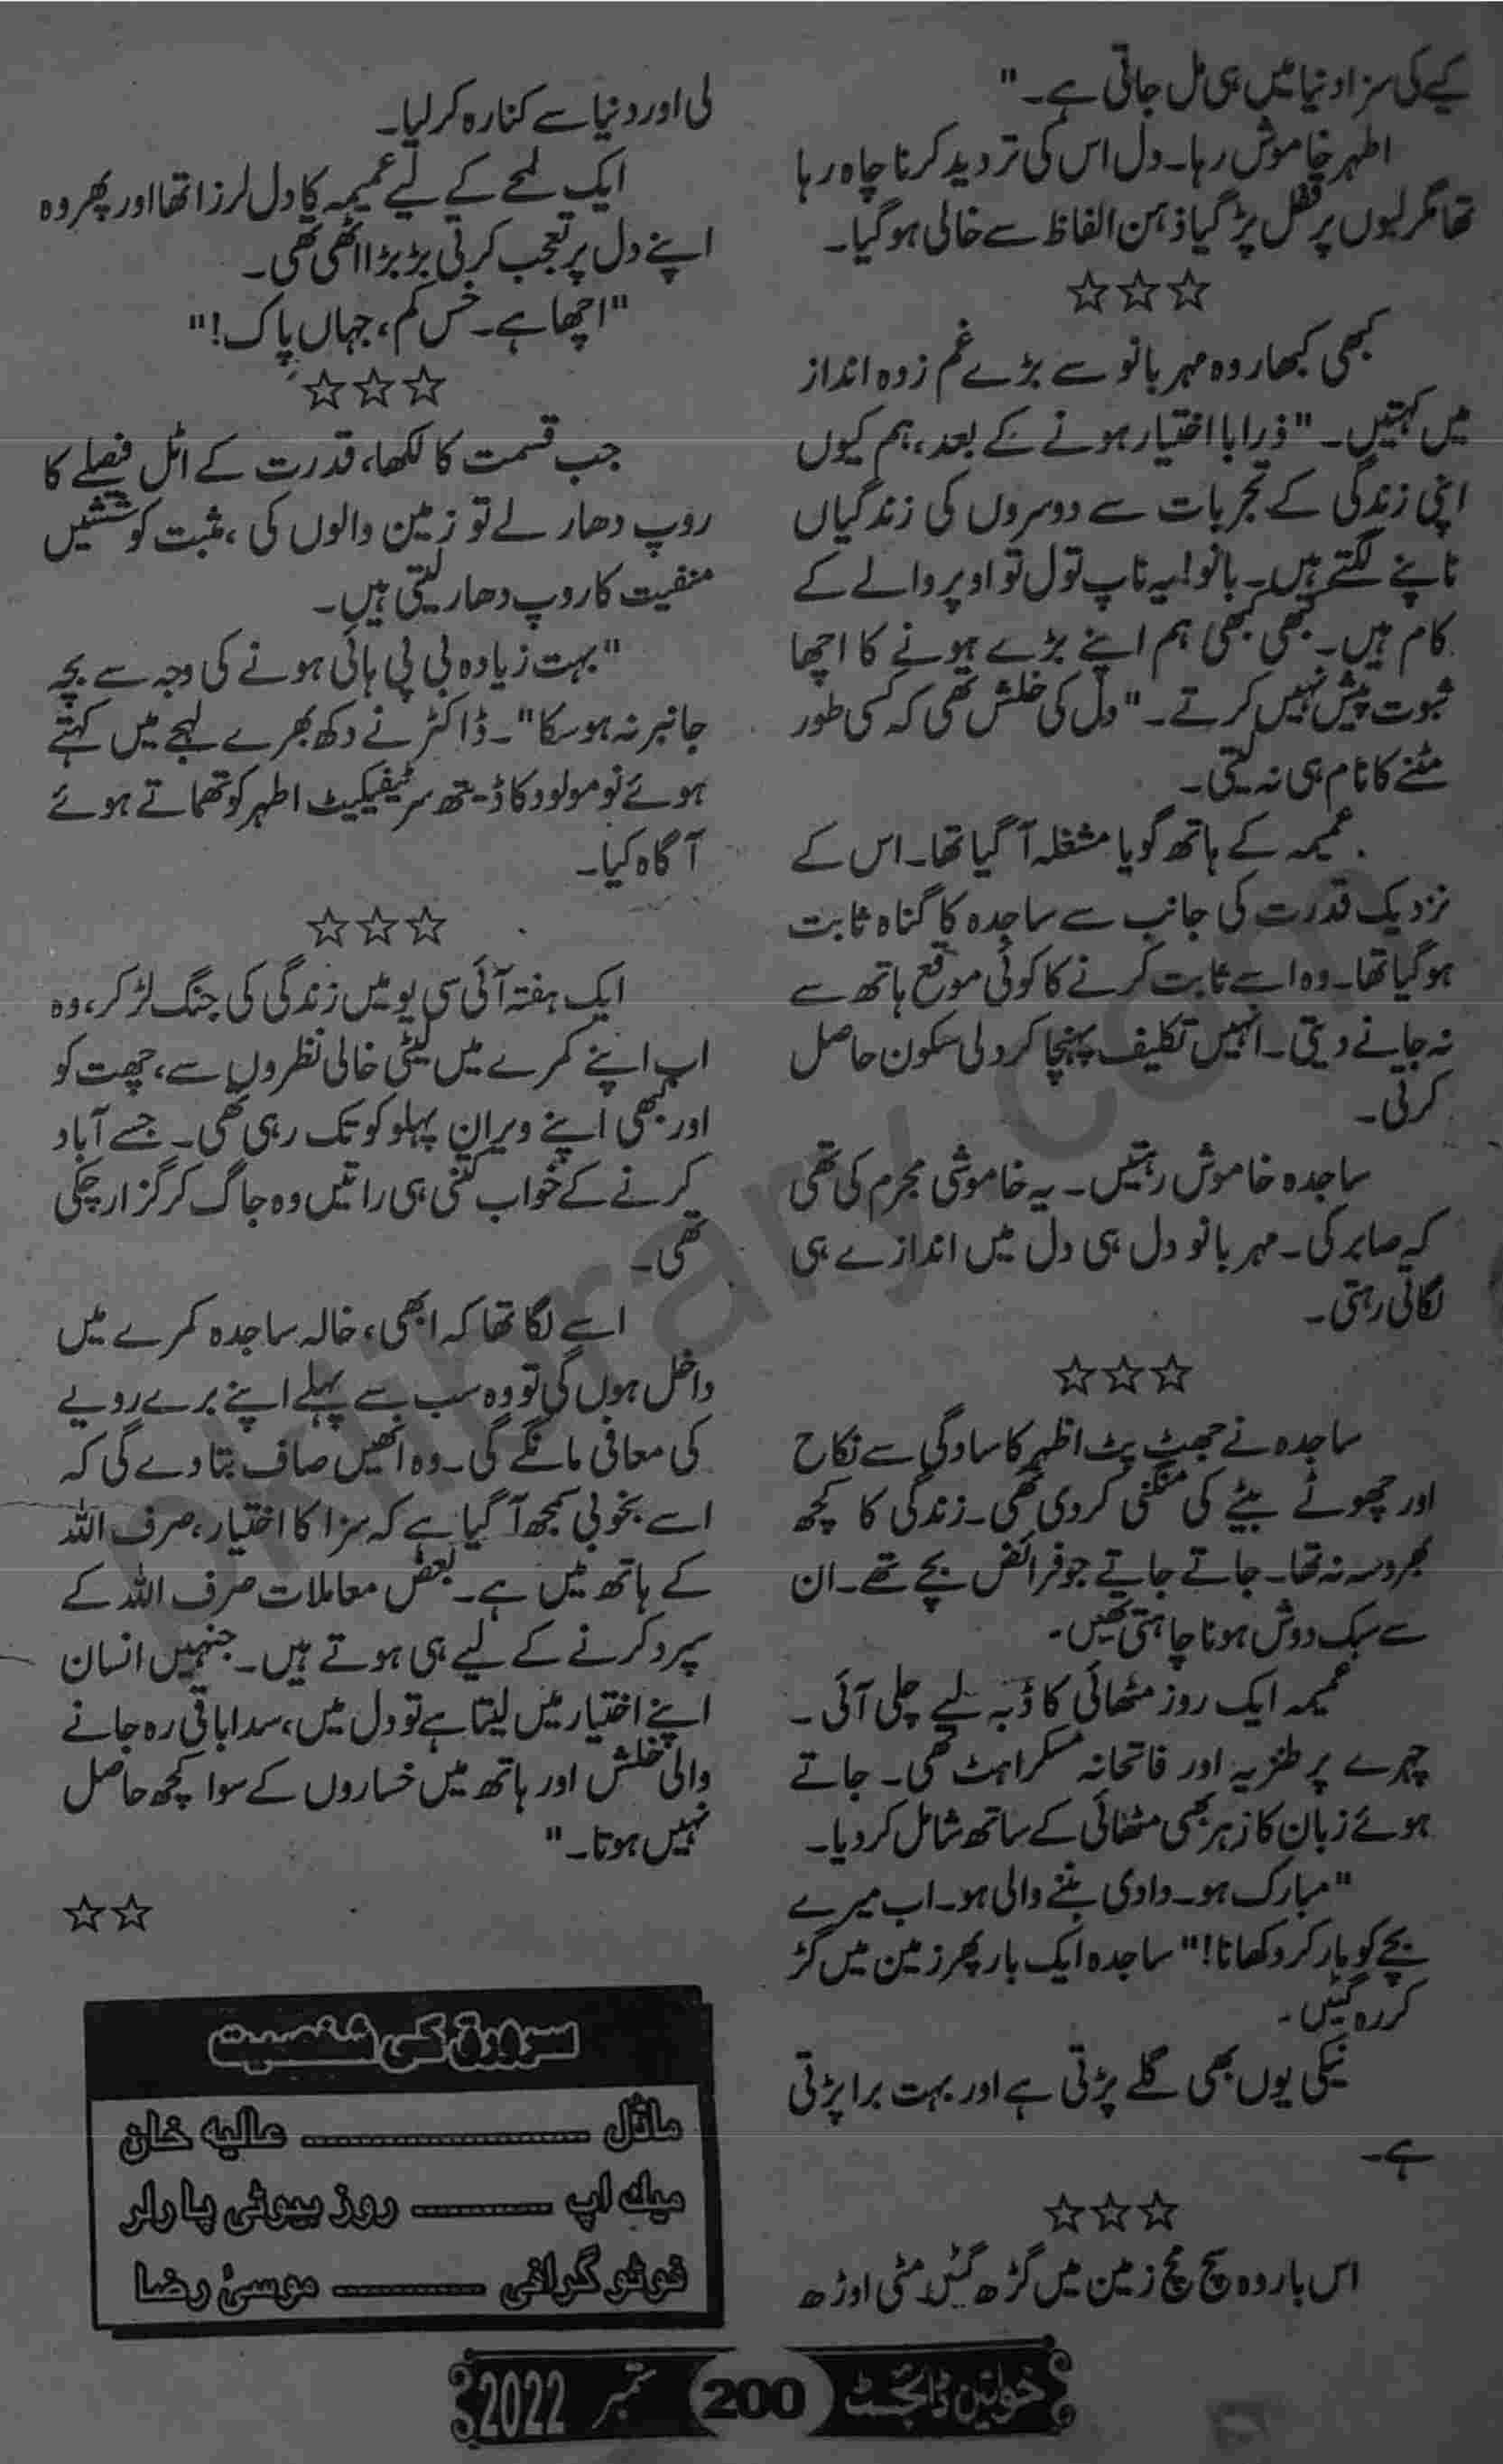 کیے کی سزا دنیا میں ہی مل جاتی ہے۔"
اطہر خاموش رہا۔ دل اس کی تردید کرنا چاہ رہا
تھا مگر لبوں پر قفل پڑ گیا ذہن الفاظ سے خالی ہو گیا۔
☆☆☆
کبھی کبھار وہ مہر بانو سے بڑے غم زدہ انداز
میں کہتیں۔ "ذرا با اختیار ہونے کے بعد، ہم کیوں
اپنی زندگی کے تجربات سے دوسروں کی زندگیاں
ناپنے لگتے ہیں۔ بانو! یہ ناپ تول تو اوپر والے کے
کام ہیں۔ کبھی کبھی ہم اپنے بڑے ہونے کا اچھا
ثبوت پیش نہیں کرتے۔" دل کی خلش تھی کہ کسی طور
مٹنے کا نام ہی نہ لیتی۔
عمیمہ کے ہاتھ گویا مشغلہ آ گیا تھا۔ اس کے
نزدیک قدرت کی جانب سے ساجدہ کا گناہ ثابت
ہو گیا تھا۔ وہ اسے ثابت کرنے کا کوئی موقع ہاتھ سے
نہ جانے دیتی۔ انہیں تکلیف پہنچا کر دلی سکون حاصل
کرتی۔
ساجدہ خاموش رہتیں۔ یہ خاموشی مجرم کی تھی
کہ صابر کی۔ مہر بانو دل ہی دل میں اندازے ہی
لگاتی رہتی۔
☆☆☆
ساجدہ نے جھٹ پٹ اظہر کا سادگی سے نکاح
اور چھوٹے بیٹے کی منگنی کر دی تھی۔ زندگی کا کچھ
بھروسہ نہ تھا۔ جاتے جاتے جو فرائض بچے تھے۔ ان
سے سبک دوش ہونا چاہتی تھیں۔
عمیمہ ایک روز مٹھائی کا ڈبہ لیے چلی آئی۔
چہرے پر طنزیہ اور فاتحانہ مسکراہٹ تھی۔ جاتے
ہوئے زبان کا زہر بھی مٹھائی کے ساتھ شامل کر دیا۔
"مبارک ہو۔ دادی بننے والی ہو۔ اب میرے
بچے کو مار کر دکھانا!" ساجدہ ایک بار پھر زمین میں گڑ
کر رہ گئیں۔
نیکی یوں بھی گلے پڑتی ہے اور بہت برا پڑتی
ہے۔
☆☆☆
اس بار وہ سچ مچ زمین میں گڑھ گئیں مٹی اوڑھ
لی اور دنیا سے کنارہ کر لیا۔
ایک لمحے کے لیے عمیمہ کا دل لرزا تھا اور پھر وہ
اپنے دل پر تعجب کرتی بڑبڑا اٹھی تھی۔
"اچھا ہے۔ خس کم، جہاں پاک!"
☆☆☆
جب قسمت کا لکھا، قدرت کے اٹل فیصلے کا
روپ دھار لے تو زمین والوں کی، مثبت کوششیں
منفیت کا روپ دھار لیتی ہیں۔
"بہت زیادہ بی پی ہائی ہونے کی وجہ سے بچہ
جانبر نہ ہو سکا"۔ ڈاکٹر نے دکھ بھرے لہجے میں کہتے
ہوئے نومولود کا ڈیتھ سرٹیفکیٹ اطہر کو تھماتے ہوئے
آگاہ کیا۔
☆☆☆
ایک ہفتہ آئی سی یو میں زندگی کی جنگ لڑ کر، وہ
اب اپنے کمرے میں لیٹی خالی نظروں سے، چھت کو
اور کبھی اپنے ویران پہلو کو تک رہی تھی۔ جسے آباد
کرنے کے خواب کتنی ہی راتیں وہ جاگ کر گزار چکی
تھی۔
اسے لگا تھا کہ ابھی، خالہ ساجدہ کمرے میں
داخل ہوں گی تو وہ سب سے پہلے اپنے برے رویے
کی معافی مانگے گی۔ وہ انھیں صاف بتا دے گی کہ
اسے بخوبی سمجھ آ گیا ہے کہ سزا کا اختیار، صرف اللہ
کے ہاتھ میں ہے۔ بعض معاملات صرف اللہ کے
سپرد کرنے کے لیے ہی ہوتے ہیں۔ جنہیں انسان
اپنے اختیار میں لیتا ہے تو دل میں، سدا باقی رہ جانے
والی خلش اور ہاتھ میں خساروں کے سوا کچھ حاصل
نہیں ہوتا۔"
☆☆
سرورق کی شخصیت
ماڈل ---------- عالیہ خان
میک اپ ---------- روز بیوٹی پارلر
فوٹو گرافی ---------- موسیٰ رضا
خواتین ڈائجسٹ 200 ستمبر 2022
pklibrary.com